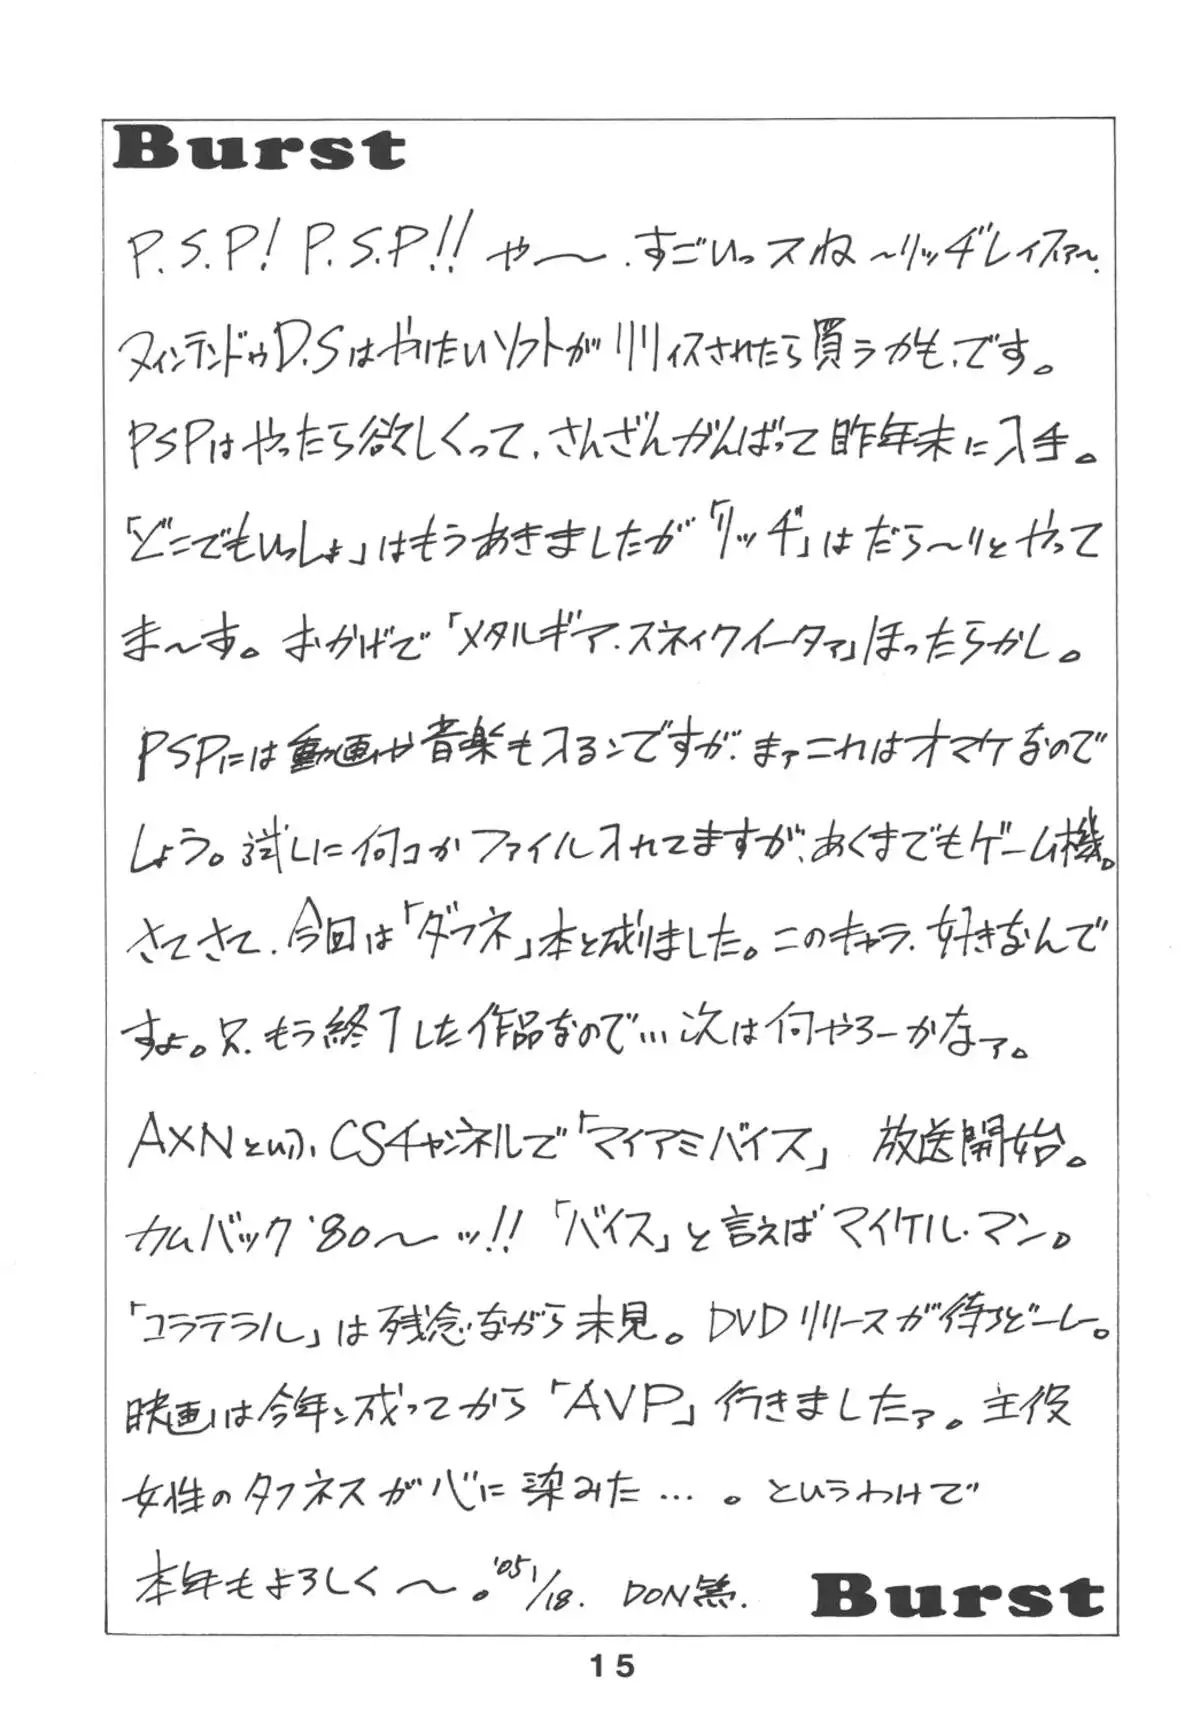 Burst
P.S.P! P.S.P!! や〜.すごいっスね〜リッヂレイスァ〜.
ヌィンテンドゥD.Sはやりたいソフトがリリィスされたら買うかも、です。
PSPはやったら欲しくって、さんざんがんばって昨年末に入手。
「どこでもいっしょ」はもうあきましたが「リッヂ」はだら〜りとやって
ま〜す。おかげで「メタルギア.スネィクイータァ」ほったらかし。
PSPには動画や音楽も入るンですが、まァこれはオマケなので
しょう。試しに何コかファイル入れてますが、あくまでもゲーム機。
さてさて、今回は「ダフネ」本と成りました。このキャラ、好きなんで
すよ。只、もう終了した作品なので…次は何やろーかなァ。
AXNという、CSチャンネルで「マイアミバイス」 放送開始。
カムバック'80〜ッ!! 「バイス」と言えばマイケル・マン。
「コラテラル」は残念ながら未見。DVDリリースが待ちどーしー。
映画は今年ン成ってから「AVP」行きましたァ。主役
女性のタフネスが心に染みた…。というわけで
本年もよろしく〜。'05 1/18. DON繁.
Burst
15